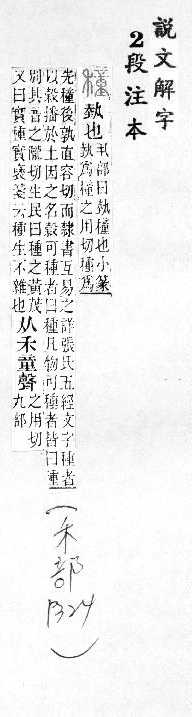 說文解字
2段注本
穜
埶也
丮部曰埶穜也小篆
埶爲穜之用切穜爲
先種後孰直容切而隷書互易之詳張氏五經文字種者
以穀播於土因之名穀可種者曰種凡物可種者皆曰種
別其音之隴切生民曰種之黃茂
又曰實種實褎箋云種生不雜也
从禾童聲
之用切
九部
(禾部)